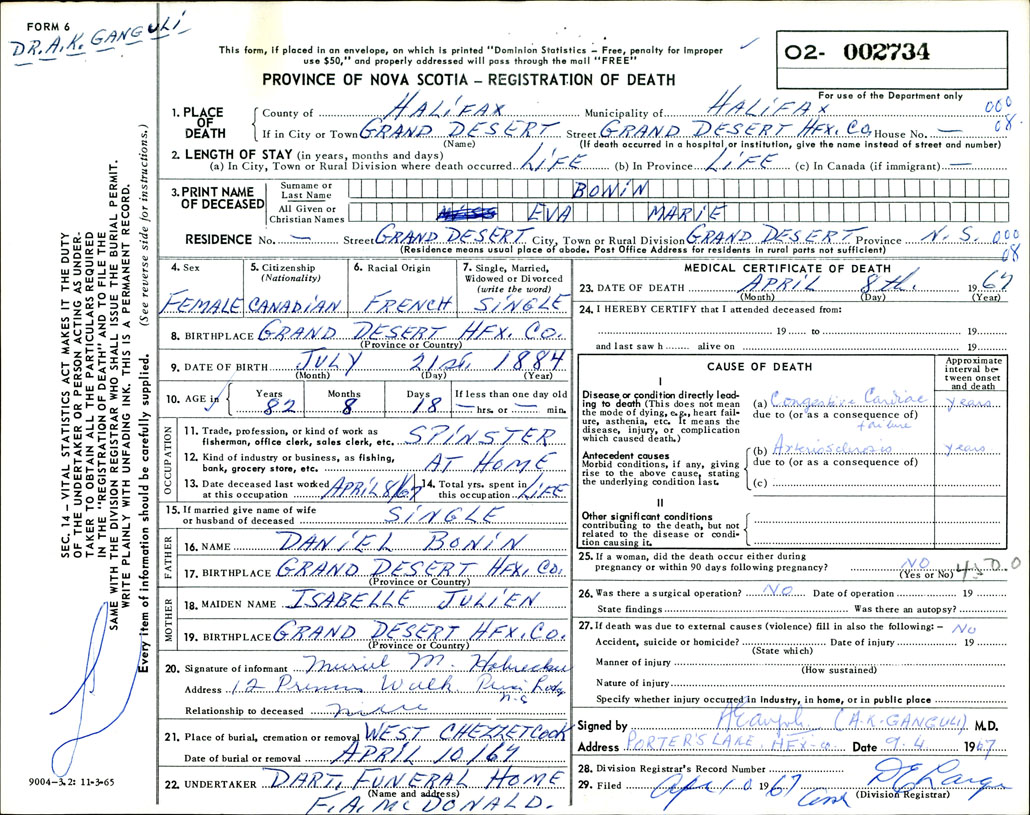 FORM 6
DR. A.K. GANGULI
This form, if placed in an envelope, on which is printed "Dominion Statistics – Free, penalty for improper
use $50," and properly addressed will pass through the mail "FREE"
PROVINCE OF NOVA SCOTIA – REGISTRATION OF DEATH
02- 002734
For use of the Department only
000
08.
1. PLACE OF DEATH
County of HALIFAX Municipality of HALIFAX
If in City or Town GRAND DESERT Street GRAND DESERT HFX. CO. House No. —
(Name) (If death occurred in a hospital or institution, give the name instead of street and number)
2. LENGTH OF STAY (in years, months and days)
(a) In City, Town or Rural Division where death occurred LIFE (b) In Province LIFE (c) In Canada (if immigrant) —
3. PRINT NAME OF DECEASED
Surname or Last Name BONIN
All Given or Christian Names EVA MARIE
RESIDENCE No. — Street GRAND DESERT City, Town or Rural Division GRAND DESERT Province N.S. 000
08
(Residence means usual place of abode. Post Office Address for residents in rural parts not sufficient)
4. Sex FEMALE
5. Citizenship (Nationality) CANADIAN
6. Racial Origin FRENCH
7. Single, Married, Widowed or Divorced (write the word) SINGLE
8. BIRTHPLACE GRAND DESERT HFX. CO.
(Province or Country)
9. DATE OF BIRTH JULY 21st. 1884
(Month) (Day) (Year)
10. AGE in Years 82 Months 8 Days 18 If less than one day old — hrs. or — min.
OCCUPATION
11. Trade, profession, or kind of work as fisherman, office clerk, sales clerk, etc. SPINSTER
12. Kind of industry or business, as fishing, bank, grocery store, etc. AT HOME
13. Date deceased last worked at this occupation APRIL 8/67
14. Total yrs. spent in this occupation LIFE
15. If married give name of wife or husband of deceased SINGLE
FATHER
16. NAME DANIEL BONIN
17. BIRTHPLACE GRAND DESERT HFX. CO.
(Province or Country)
MOTHER
18. MAIDEN NAME ISABELLE JULIEN
19. BIRTHPLACE GRAND DESERT HFX. CO.
(Province or Country)
20. Signature of informant Muriel M.
Address 12 Walk
Relationship to deceased niece
21. Place of burial, cremation or removal WEST CHEZZETCOOK
Date of burial or removal APRIL 10/67
22. UNDERTAKER DART. FUNERAL HOME
(Name and address)
F.A. McDONALD.
MEDICAL CERTIFICATE OF DEATH
23. DATE OF DEATH APRIL 8th. 1967
(Month) (Day) (Year)
24. I HEREBY CERTIFY that I attended deceased from:
19 to 19
and last saw h alive on 19
CAUSE OF DEATH
Approximate interval between onset and death
I
Disease or condition directly leading to death (This does not mean the mode of dying, e.g., heart failure, asthenia, etc. It means the disease, injury, or complication which caused death.)
(a) Congestive Cardiac failure years
due to (or as a consequence of)
Antecedent causes
Morbid conditions, if any, giving rise to the above cause, stating the underlying condition last.
(b) Arteriosclerosis years
due to (or as a consequence of)
(c)
II
Other significant conditions contributing to the death, but not related to the disease or condition causing it.
25. If a woman, did the death occur either during pregnancy or within 90 days following pregnancy? NO
(Yes or No)
26. Was there a surgical operation? NO Date of operation 19
State findings Was there an autopsy?
27. If death was due to external causes (violence) fill in also the following: – No
Accident, suicide or homicide? Date of injury 19
(State which)
Manner of injury
(How sustained)
Nature of injury
Specify whether injury occurred in industry, in home, or in public place
Signed by AKGanguli (A.K. GANGULI) M.D.
Address PORTER'S LAKE, HFX. CO. Date 9.4 1967
28. Division Registrar's Record Number
29. Filed Apr 10 1967
(Division Registrar)
SEC. 14 – VITAL STATISTICS ACT MAKES IT THE DUTY
OF THE UNDERTAKER OR PERSON ACTING AS UNDER-
TAKER TO OBTAIN ALL THE PARTICULARS REQUIRED
IN THE "REGISTRATION OF DEATH" AND TO FILE THE
SAME WITH THE DIVISION REGISTRAR WHO SHALL ISSUE THE BURIAL PERMIT.
WRITE PLAINLY WITH UNFADING INK. THIS IS A PERMANENT RECORD.
Every item of information should be carefully supplied. (See reverse side for instructions.)
9004–3.2: 11-3-65